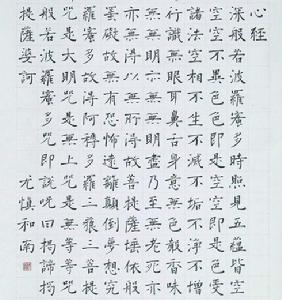 心經
深般若波羅蜜多時照見五蘊皆空
空空不異色色即是空空即是色受
諸法空相不生不滅不垢不淨不增
行識無眼耳鼻舌身意無色聲香味
無無明亦無無明盡乃至無老死亦
亦無得以無所得故菩提薩埵依般
罣礙故無有恐怖遠離顛倒夢想究
羅蜜多故得阿耨多羅三藐三菩提
咒是大明咒是無上咒是無等等咒
般若波羅蜜多咒即說咒曰揭諦揭
提薩婆訶
尤慎和南